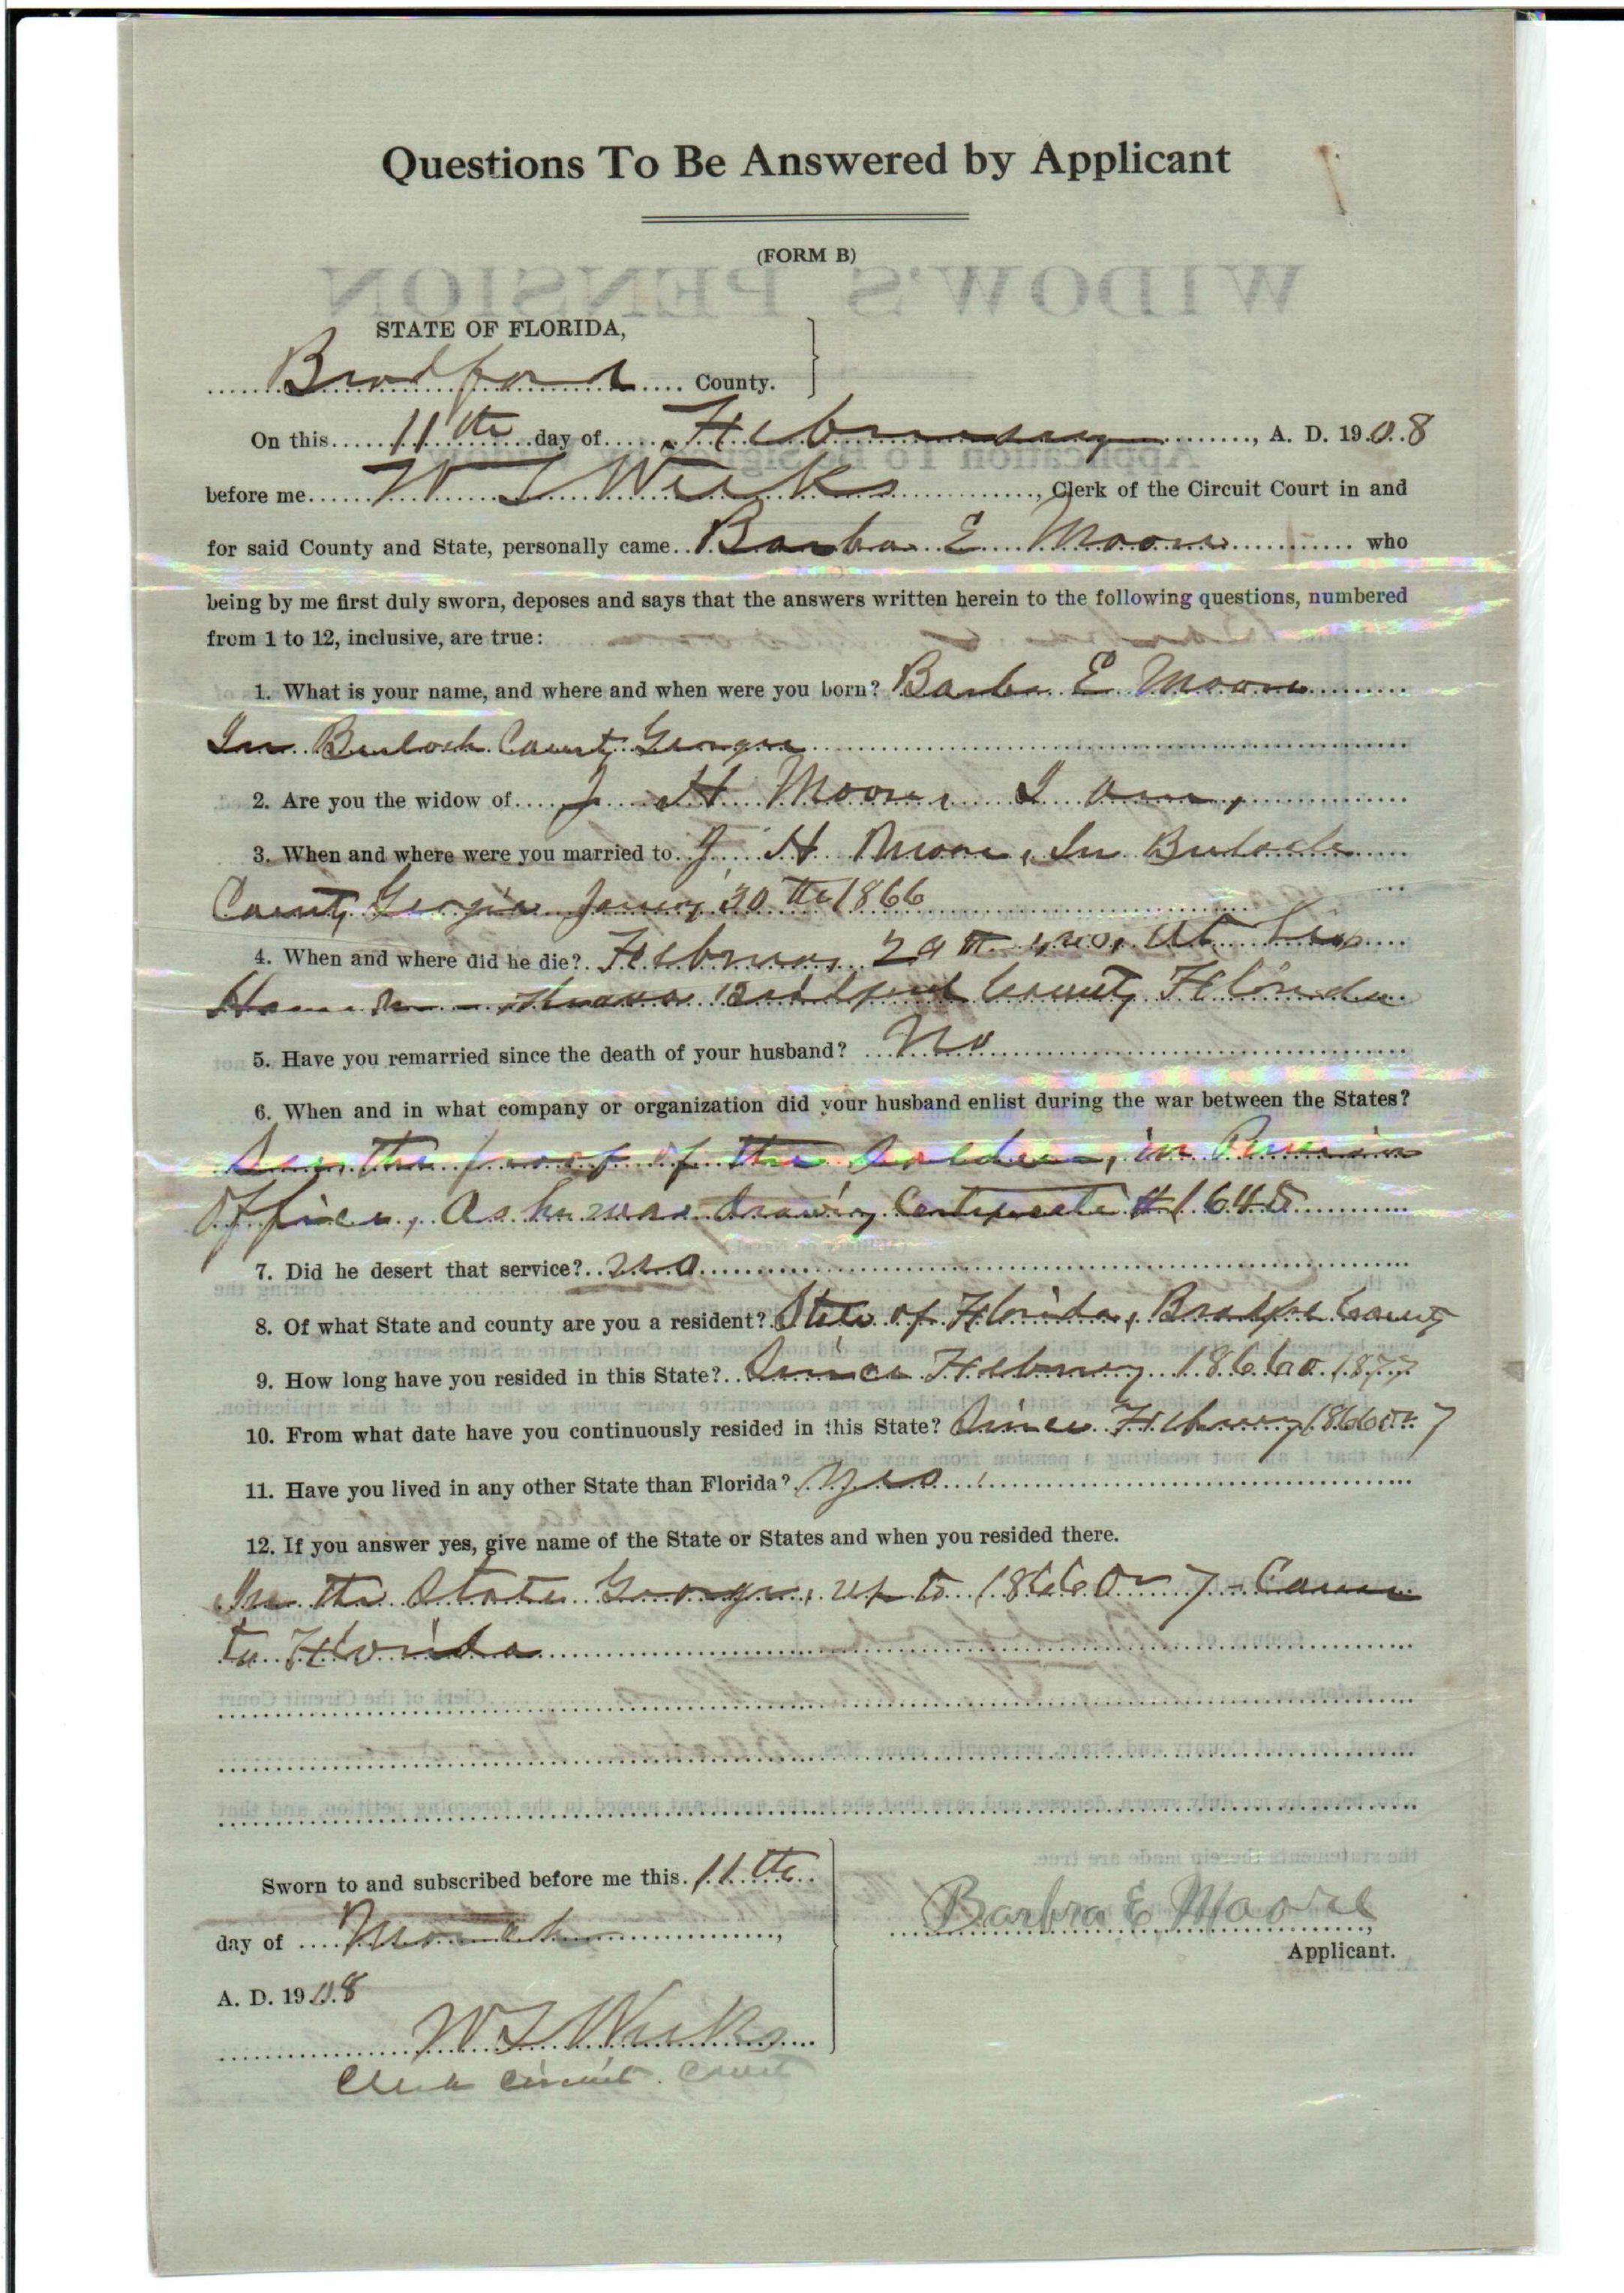 Questions To Be Answered by Applicant
(FORM B)
STATE OF FLORIDA,
Bradford County.
On this 11th day of February, A. D. 1908
before me W T Weeks, Clerk of the Circuit Court in and
for said County and State, personally came Barba E Moore who
being by me first duly sworn, deposes and says that the answers written herein to the following questions, numbered
from 1 to 12, inclusive, are true:
1. What is your name, and where and when were you born? Barba E Moore
In Buloch County Georgia
2. Are you the widow of J H Moore, I am,
3. When and where were you married to J. H Moore, In Buloch
County Georgia 30th 1866
4. When and where did he die? February at his
Home Bradford County Florida
5. Have you remarried since the death of your husband? No
6. When and in what company or organization did your husband enlist during the war between the States?
See the proof of the Soldier, in Pension
Office, As he was drawing Certificate # 1645
7. Did he desert that service? no
8. Of what State and county are you a resident? State of Florida, Bradford County
9. How long have you resided in this State? Since February 1866 or 1877
10. From what date have you continuously resided in this State? Since February 1866 or 7
11. Have you lived in any other State than Florida? yes
12. If you answer yes, give name of the State or States and when you resided there.
In the State Georgia, up to 1866 or 7 - Came
to Florida
Sworn to and subscribed before me this 11th
day of March,
A. D. 1908
W T Weeks
Clerk Circuit Court
Barbra E Moore
Applicant.